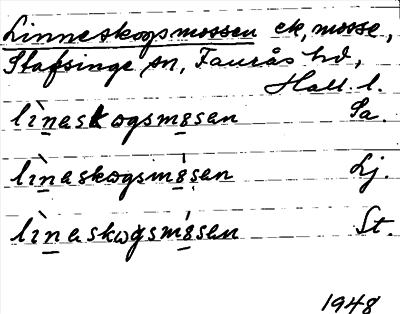 Linneskogsmossen ek, mosse,
Stafsinge sn, Faurås hd,
Hall. l.
lìnaskogsmøsen Sa.
lìnaskogsmø̀sen Lj.
lìnaskogsmø̀sen St.
1948